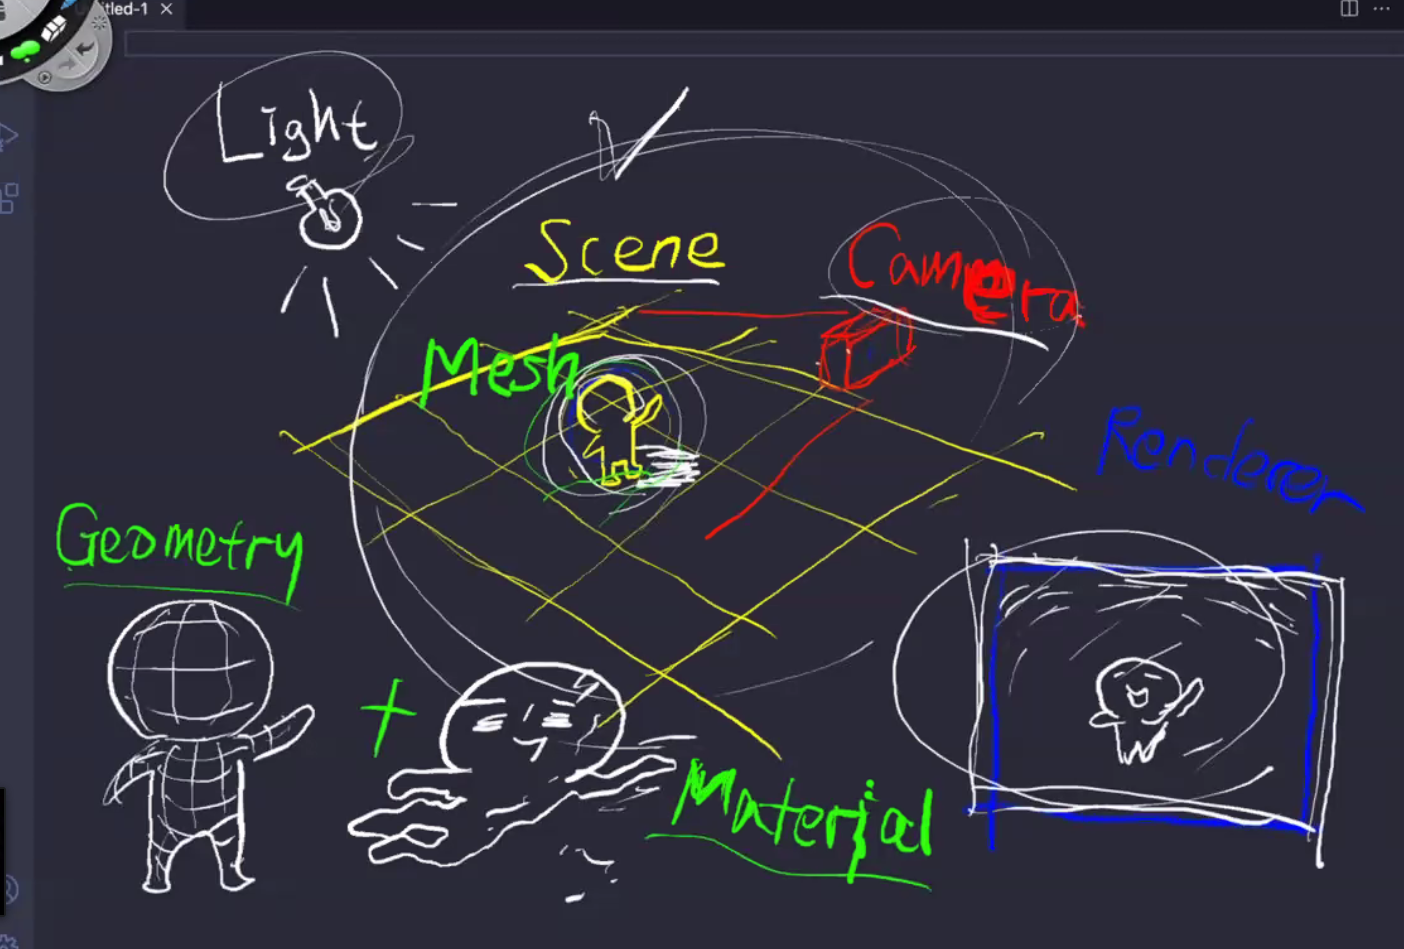 Light
Scene
Camera
Mesh
Renderer
Geometry
+
Material